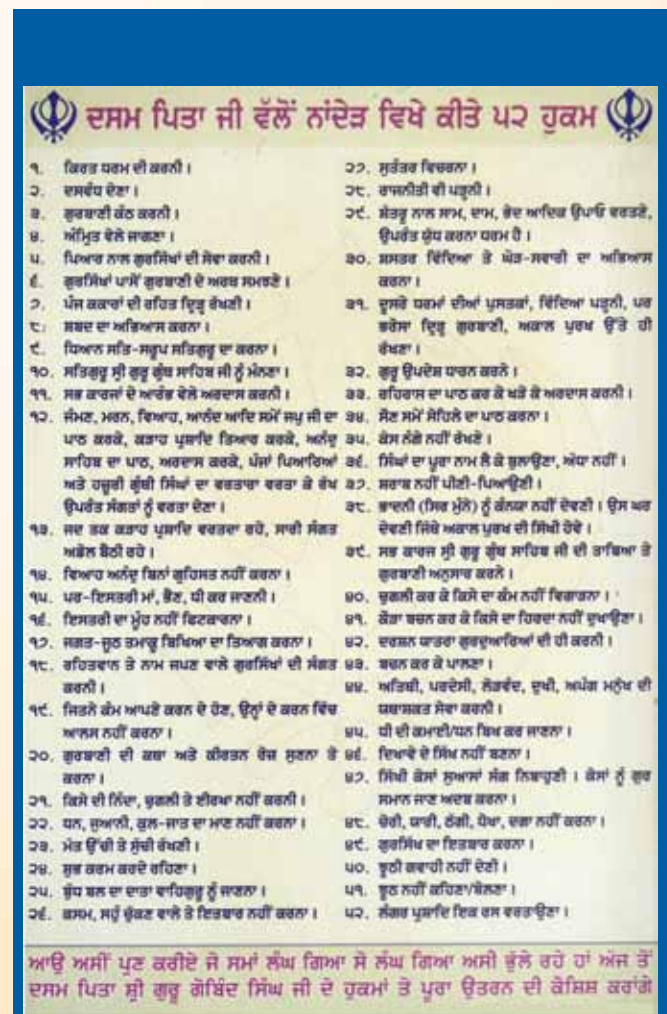 ਦਸਮ ਪਿਤਾ ਜੀ ਵੱਲੋਂ ਨਾਂਦੇੜ ਵਿਖੇ ਕੀਤੇ ੫੨ ਹੁਕਮ
੧. ਕਿਰਤ ਧਰਮ ਦੀ ਕਰਨੀ।
੨. ਦਸਵੰਧ ਦੇਣਾ।
੩. ਗੁਰਬਾਣੀ ਕੰਠ ਕਰਨੀ।
੪. ਅੰਮ੍ਰਿਤ ਵੇਲੇ ਜਾਗਣਾ।
੫. ਪਿਆਰ ਨਾਲ ਗੁਰਸਿੱਖਾਂ ਦੀ ਸੇਵਾ ਕਰਨੀ।
੬. ਗੁਰਸਿੱਖਾਂ ਪਾਸੋਂ ਗੁਰਬਾਣੀ ਦੇ ਅਰਥ ਸਮਝਣੇ।
੭. ਪੰਜ ਕਕਾਰਾਂ ਦੀ ਰਹਿਤ ਦ੍ਰਿੜ੍ਹ ਰੱਖਣੀ।
੮. ਸ਼ਬਦ ਦਾ ਅਭਿਆਸ ਕਰਨਾ।
੯. ਧਿਆਨ ਸਤਿ-ਸਰੂਪ ਸਤਿਗੁਰੂ ਦਾ ਕਰਨਾ।
੧੦. ਸਤਿਗੁਰੂ ਸ੍ਰੀ ਗੁਰੂ ਗ੍ਰੰਥ ਸਾਹਿਬ ਜੀ ਨੂੰ ਮੰਨਣਾ।
੧੧. ਸਭ ਕਾਰਜਾਂ ਦੇ ਆਰੰਭ ਵੇਲੇ ਅਰਦਾਸ ਕਰਨੀ।
੧੨. ਜੰਮਣ, ਮਰਨ, ਵਿਆਹ, ਆਨੰਦ ਆਦਿ ਸਮੇਂ ਜਪੁ ਜੀ ਦਾ
ਪਾਠ ਕਰਕੇ, ਕੜਾਹ ਪ੍ਰਸ਼ਾਦਿ ਤਿਆਰ ਕਰਕੇ, ਅਨੰਦੁ
ਸਾਹਿਬ ਦਾ ਪਾਠ, ਅਰਦਾਸ ਕਰਕੇ, ਪੰਜਾਂ ਪਿਆਰਿਆਂ
ਅਤੇ ਹਜ਼ੂਰੀ ਗ੍ਰੰਥੀ ਸਿੰਘਾਂ ਦਾ ਵਰਤਾਰਾ ਵਰਤਾ ਕੇ ਰੱਖ
ਉਪਰੰਤ ਸੰਗਤਾਂ ਨੂੰ ਵਰਤਾ ਦੇਣਾ।
੧੩. ਜਦ ਤਕ ਕੜਾਹ ਪ੍ਰਸ਼ਾਦਿ ਵਰਤਦਾ ਰਹੇ, ਸਾਰੀ ਸੰਗਤ
ਅਡੋਲ ਬੈਠੀ ਰਹੇ।
੧੪. ਵਿਆਹ ਅਨੰਦੁ ਬਿਨਾਂ ਗ੍ਰਹਿਸਤ ਨਹੀਂ ਕਰਨਾ।
੧੫. ਪਰ-ਇਸਤਰੀ ਮਾਂ, ਭੈਣ, ਧੀ ਕਰ ਜਾਣਨੀ।
੧੬. ਇਸਤਰੀ ਦਾ ਮੂੰਹ ਨਹੀਂ ਫਿਟਕਾਰਨਾ।
੧੭. ਜਗਤ-ਜੂਠ ਤਮਾਕੂ ਬਿਖਿਆ ਦਾ ਤਿਆਗ ਕਰਨਾ।
੧੮. ਰਹਿਤਵਾਨ ਤੇ ਨਾਮ ਜਪਣ ਵਾਲੇ ਗੁਰਸਿੱਖਾਂ ਦੀ ਸੰਗਤ
ਕਰਨੀ।
੧੯. ਜਿਤਨੇ ਕੰਮ ਆਪਣੇ ਕਰਨ ਦੇ ਹੋਣ, ਉਨ੍ਹਾਂ ਦੇ ਕਰਨ ਵਿੱਚ
ਆਲਸ ਨਹੀਂ ਕਰਨਾ।
੨੦. ਗੁਰਬਾਣੀ ਦੀ ਕਥਾ ਅਤੇ ਕੀਰਤਨ ਰੋਜ਼ ਸੁਣਨਾ ਤੇ
ਕਰਨਾ।
੨੧. ਕਿਸੇ ਦੀ ਨਿੰਦਾ, ਚੁਗਲੀ ਤੇ ਈਰਖਾ ਨਹੀਂ ਕਰਨੀ।
੨੨. ਧਨ, ਜੁਆਨੀ, ਕੁਲ-ਜਾਤ ਦਾ ਮਾਣ ਨਹੀਂ ਕਰਨਾ।
੨੩. ਮੱਤ ਉੱਚੀ ਤੇ ਸੁੱਚੀ ਰੱਖਣੀ।
੨੪. ਸ਼ੁਭ ਕਰਮ ਕਰਦੇ ਰਹਿਣਾ।
੨੫. ਬੁੱਧ ਬਲ ਦਾ ਦਾਤਾ ਵਾਹਿਗੁਰੂ ਨੂੰ ਜਾਣਨਾ।
੨੬. ਕਸਮ, ਸਹੁੰ ਚੁੱਕਣ ਵਾਲੇ ਤੇ ਇਤਬਾਰ ਨਹੀਂ ਕਰਨਾ।
੨੭. ਸੁਤੰਤਰ ਵਿਚਰਨਾ।
੨੮. ਰਾਜਨੀਤੀ ਵੀ ਪੜ੍ਹਨੀ।
੨੯. ਸ਼ੱਤਰੂ ਨਾਲ ਸਾਮ, ਦਾਮ, ਭੇਦ ਆਦਿਕ ਉਪਾਓ ਵਰਤਣੇ,
ਉਪਰੰਤ ਯੁੱਧ ਕਰਨਾ ਧਰਮ ਹੈ।
੩੦. ਸ਼ਸਤਰ ਵਿੱਦਿਆ ਤੇ ਘੋੜ-ਸਵਾਰੀ ਦਾ ਅਭਿਆਸ
ਕਰਨਾ।
੩੧. ਦੂਸਰੇ ਧਰਮਾਂ ਦੀਆਂ ਪੁਸਤਕਾਂ, ਵਿੱਦਿਆ ਪੜ੍ਹਨੀ, ਪਰ
ਭਰੋਸਾ ਦ੍ਰਿੜ੍ਹ ਗੁਰਬਾਣੀ, ਅਕਾਲ ਪੁਰਖ ਉੱਤੇ ਹੀ
ਰੱਖਣਾ।
੩੨. ਗੁਰੂ ਉਪਦੇਸ਼ ਧਾਰਨ ਕਰਨੇ।
੩੩. ਰਹਿਰਾਸ ਦਾ ਪਾਠ ਕਰ ਕੇ ਖੜੋ ਕੇ ਅਰਦਾਸ ਕਰਨੀ।
੩੪. ਸੌਣ ਸਮੇਂ ਸੋਹਿਲੇ ਦਾ ਪਾਠ ਕਰਨਾ।
੩੫. ਕੇਸ ਨੰਗੇ ਨਹੀਂ ਰੱਖਣੇ।
੩੬. ਸਿੰਘਾਂ ਦਾ ਪੂਰਾ ਨਾਮ ਲੈ ਕੇ ਬੁਲਾਉਣਾ, ਅੱਧਾ ਨਹੀਂ।
੩੭. ਸ਼ਰਾਬ ਨਹੀਂ ਪੀਣੀ-ਪਿਆਉਣੀ।
੩੮. ਭਾਦਨੀ (ਸਿਰ ਮੁੰਨੇ) ਨੂੰ ਕੰਨਯਾ ਨਹੀਂ ਦੇਵਣੀ। ਉਸ ਘਰ
ਦੇਵਣੀ ਜਿੱਥੇ ਅਕਾਲ ਪੁਰਖ ਦੀ ਸਿੱਖੀ ਹੋਵੇ।
੩੯. ਸਭ ਕਾਰਜ ਸ੍ਰੀ ਗੁਰੂ ਗ੍ਰੰਥ ਸਾਹਿਬ ਜੀ ਦੀ ਤਾਬਿਆ ਤੇ
ਗੁਰਬਾਣੀ ਅਨੁਸਾਰ ਕਰਨੇ।
੪੦. ਚੁਗਲੀ ਕਰ ਕੇ ਕਿਸੇ ਦਾ ਕੰਮ ਨਹੀਂ ਵਿਗਾੜਨਾ।
੪੧. ਕੌੜਾ ਬਚਨ ਕਰ ਕੇ ਕਿਸੇ ਦਾ ਹਿਰਦਾ ਨਹੀਂ ਦੁਖਾਉਣਾ।
੪੨. ਦਰਸ਼ਨ ਯਾਤਰਾ ਗੁਰਦੁਆਰਿਆਂ ਦੀ ਹੀ ਕਰਨੀ।
੪੩. ਬਚਨ ਕਰ ਕੇ ਪਾਲਣਾ।
੪੪. ਅਤਿਥੀ, ਪਰਦੇਸੀ, ਲੋੜਵੰਦ, ਦੁਖੀ, ਅਪੰਗ ਮਨੁੱਖ ਦੀ
ਯਥਾਸ਼ਕਤ ਸੇਵਾ ਕਰਨੀ।
੪੫. ਧੀ ਦੀ ਕਮਾਈ/ਧਨ ਬਿਖ ਕਰ ਜਾਣਨਾ।
੪੬. ਦਿਖਾਵੇ ਦੇ ਸਿੱਖ ਨਹੀਂ ਬਣਨਾ।
੪੭. ਸਿੱਖੀ ਕੇਸਾਂ ਸੁਆਸਾਂ ਸੰਗ ਨਿਬਾਹੁਣੀ। ਕੇਸਾਂ ਨੂੰ ਗੁਰ
ਸਮਾਨ ਜਾਣ ਅਦਬ ਕਰਨਾ।
੪੮. ਚੋਰੀ, ਯਾਰੀ, ਠੱਗੀ, ਧੋਖਾ, ਦਗਾ ਨਹੀਂ ਕਰਨਾ।
੪੯. ਗੁਰਸਿੱਖ ਦਾ ਇਤਬਾਰ ਕਰਨਾ।
੫੦. ਝੂਠੀ ਗਵਾਹੀ ਨਹੀਂ ਦੇਣੀ।
੫੧. ਝੂਠ ਨਹੀਂ ਕਹਿਣਾ/ਬੋਲਣਾ।
੫੨. ਲੰਗਰ ਪ੍ਰਸ਼ਾਦਿ ਇਕ ਰਸ ਵਰਤਾਉਣਾ।
ਆਉ ਅਸੀਂ ਪ੍ਰਣ ਕਰੀਏ ਜੋ ਸਮਾਂ ਲੰਘ ਗਿਆ ਸੋ ਲੰਘ ਗਿਆ ਅਸੀ ਭੁੱਲੇ ਰਹੇ ਹਾਂ ਅੱਜ ਤੋਂ
ਦਸਮ ਪਿਤਾ ਸ੍ਰੀ ਗੁਰੂ ਗੋਬਿੰਦ ਸਿੰਘ ਜੀ ਦੇ ਹੁਕਮਾਂ ਤੇ ਪੂਰਾ ਉਤਰਨ ਦੀ ਕੋਸ਼ਿਸ਼ ਕਰਾਂਗੇ